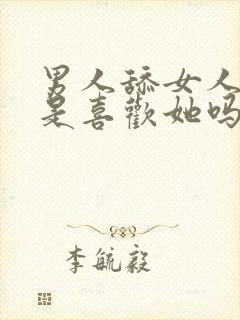 男人舔女人
是喜歡她吗
李毓毅